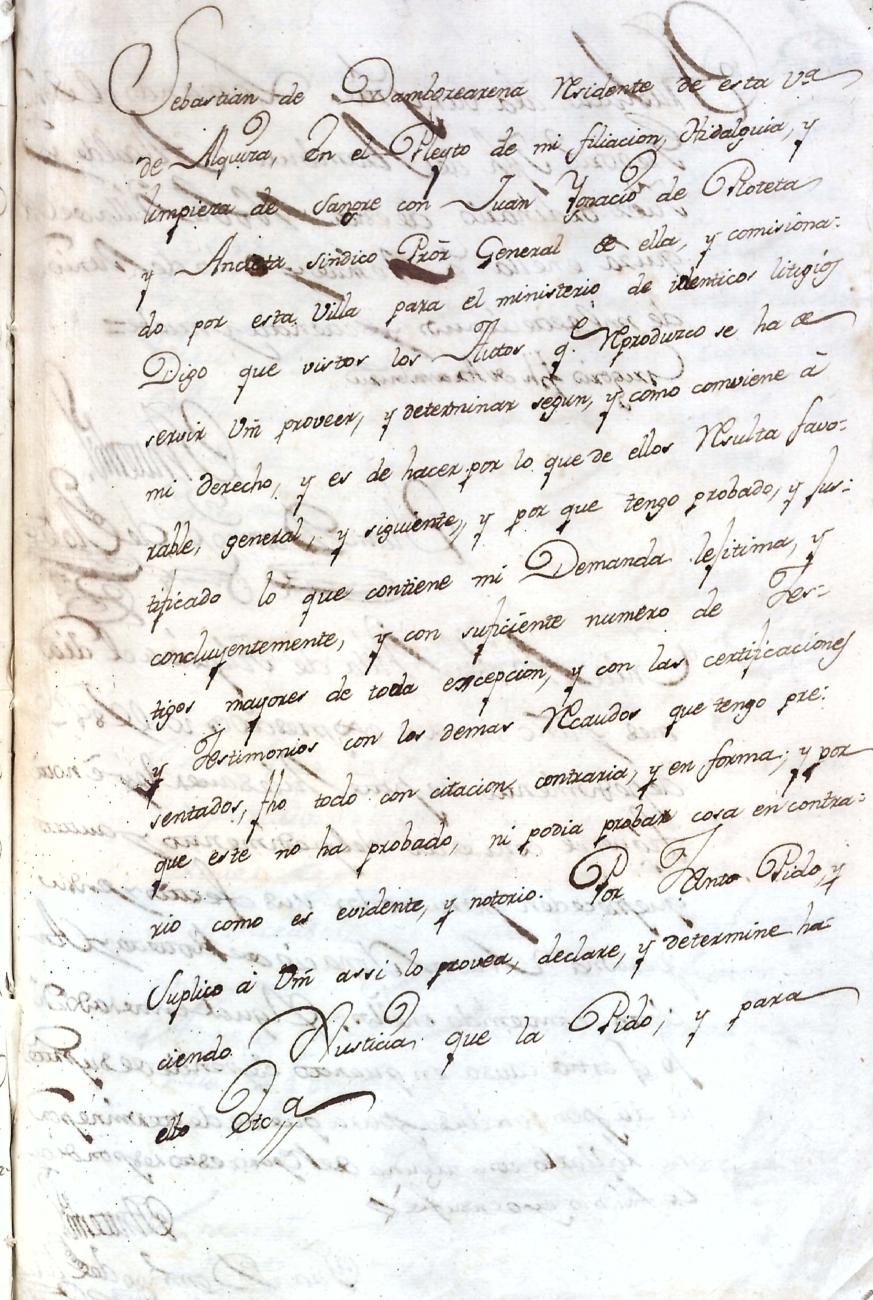 Sebastian de Damborearena Residente de esta Vª
de Alquiza, En el Pleyto de mi filiacion, Hidalguia, y
limpieza de Sangre con Juan Ygnacio de Roteta
y Ancieta sindico Pror General de ella, y comisiona-
do por esta Villa para el ministerio de identicos litigios
Digo que vistos los Autos q.e Reproduzco se ha de
servir Vm proveer, y determinar segun, y como comviene à
mi derecho, y es de hacer por lo que de ellos Resulta favo-
rable, general, y siguiente, y por que tengo probado, y Jus-
tificado lo que contiene mi Demanda lejitima, y
concluyentemente, y con suficiente numero de Tes-
tigos mayores de toda excepcion, y con las certificaciones
y Testimonios con los demas Recaudos que tengo pre-
sentados, fho todo con citacion contraria, y en forma; y por
que este no ha probado, ni podia probar cosa en contra-
rio como es evidente, y notorio. Por Tanto Pido, y
Suplico à Vm assi lo provea, declare, y determine ha-
ciendo Justicia que la Pido, y para
ello Etcª